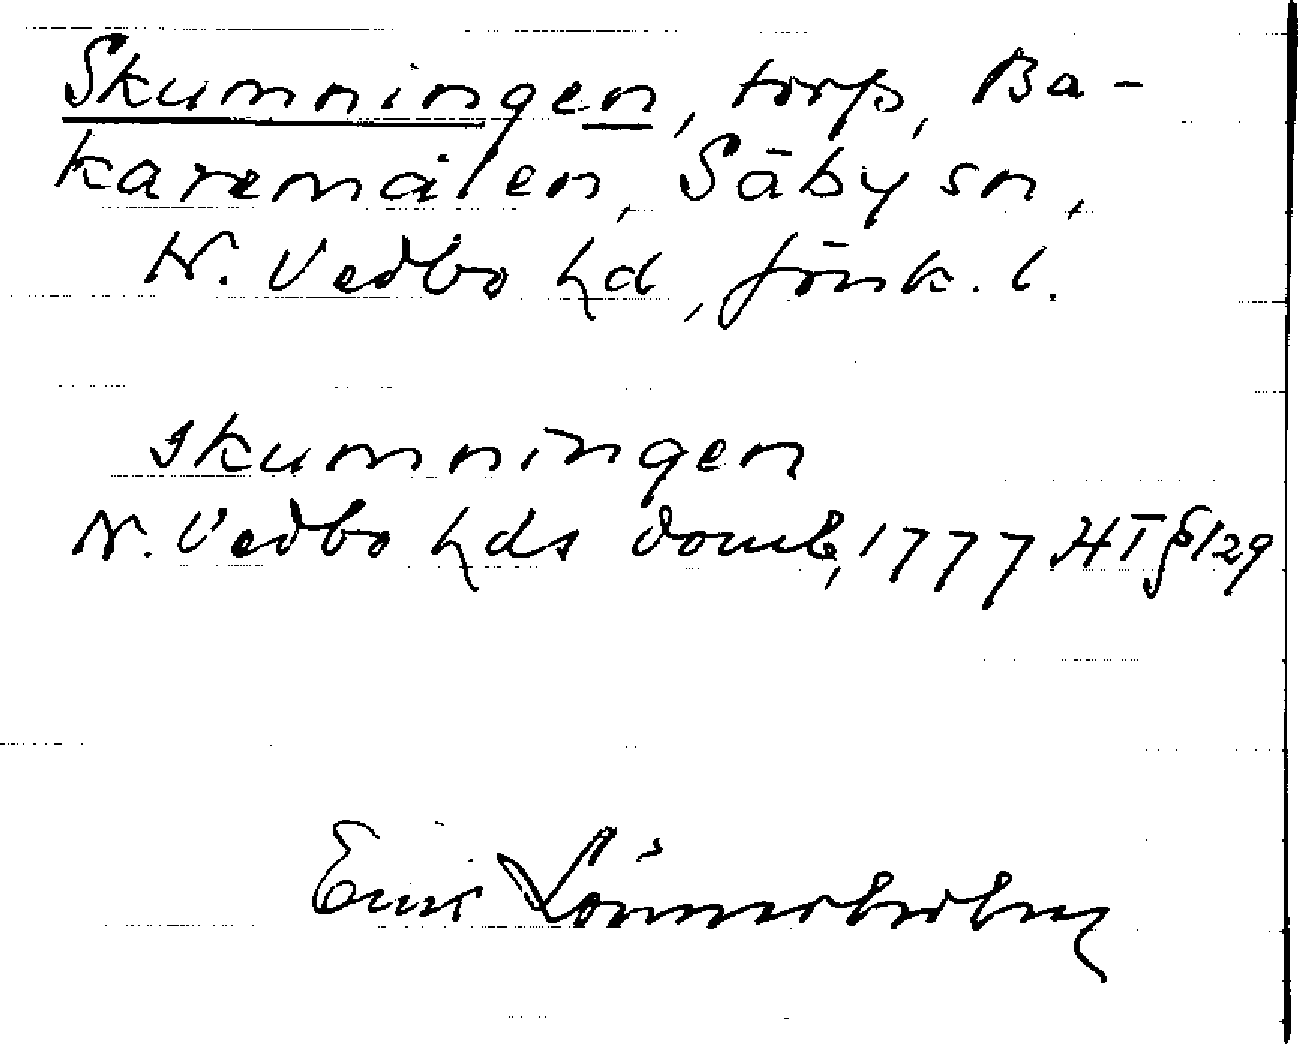 Skumningen, torp, Ba-
karemålen, Säby sn,
N. Vedbo hd, Jönk. l.
Skumningen
N. Vedbo hds domb, 1777 HT § 129
Erik